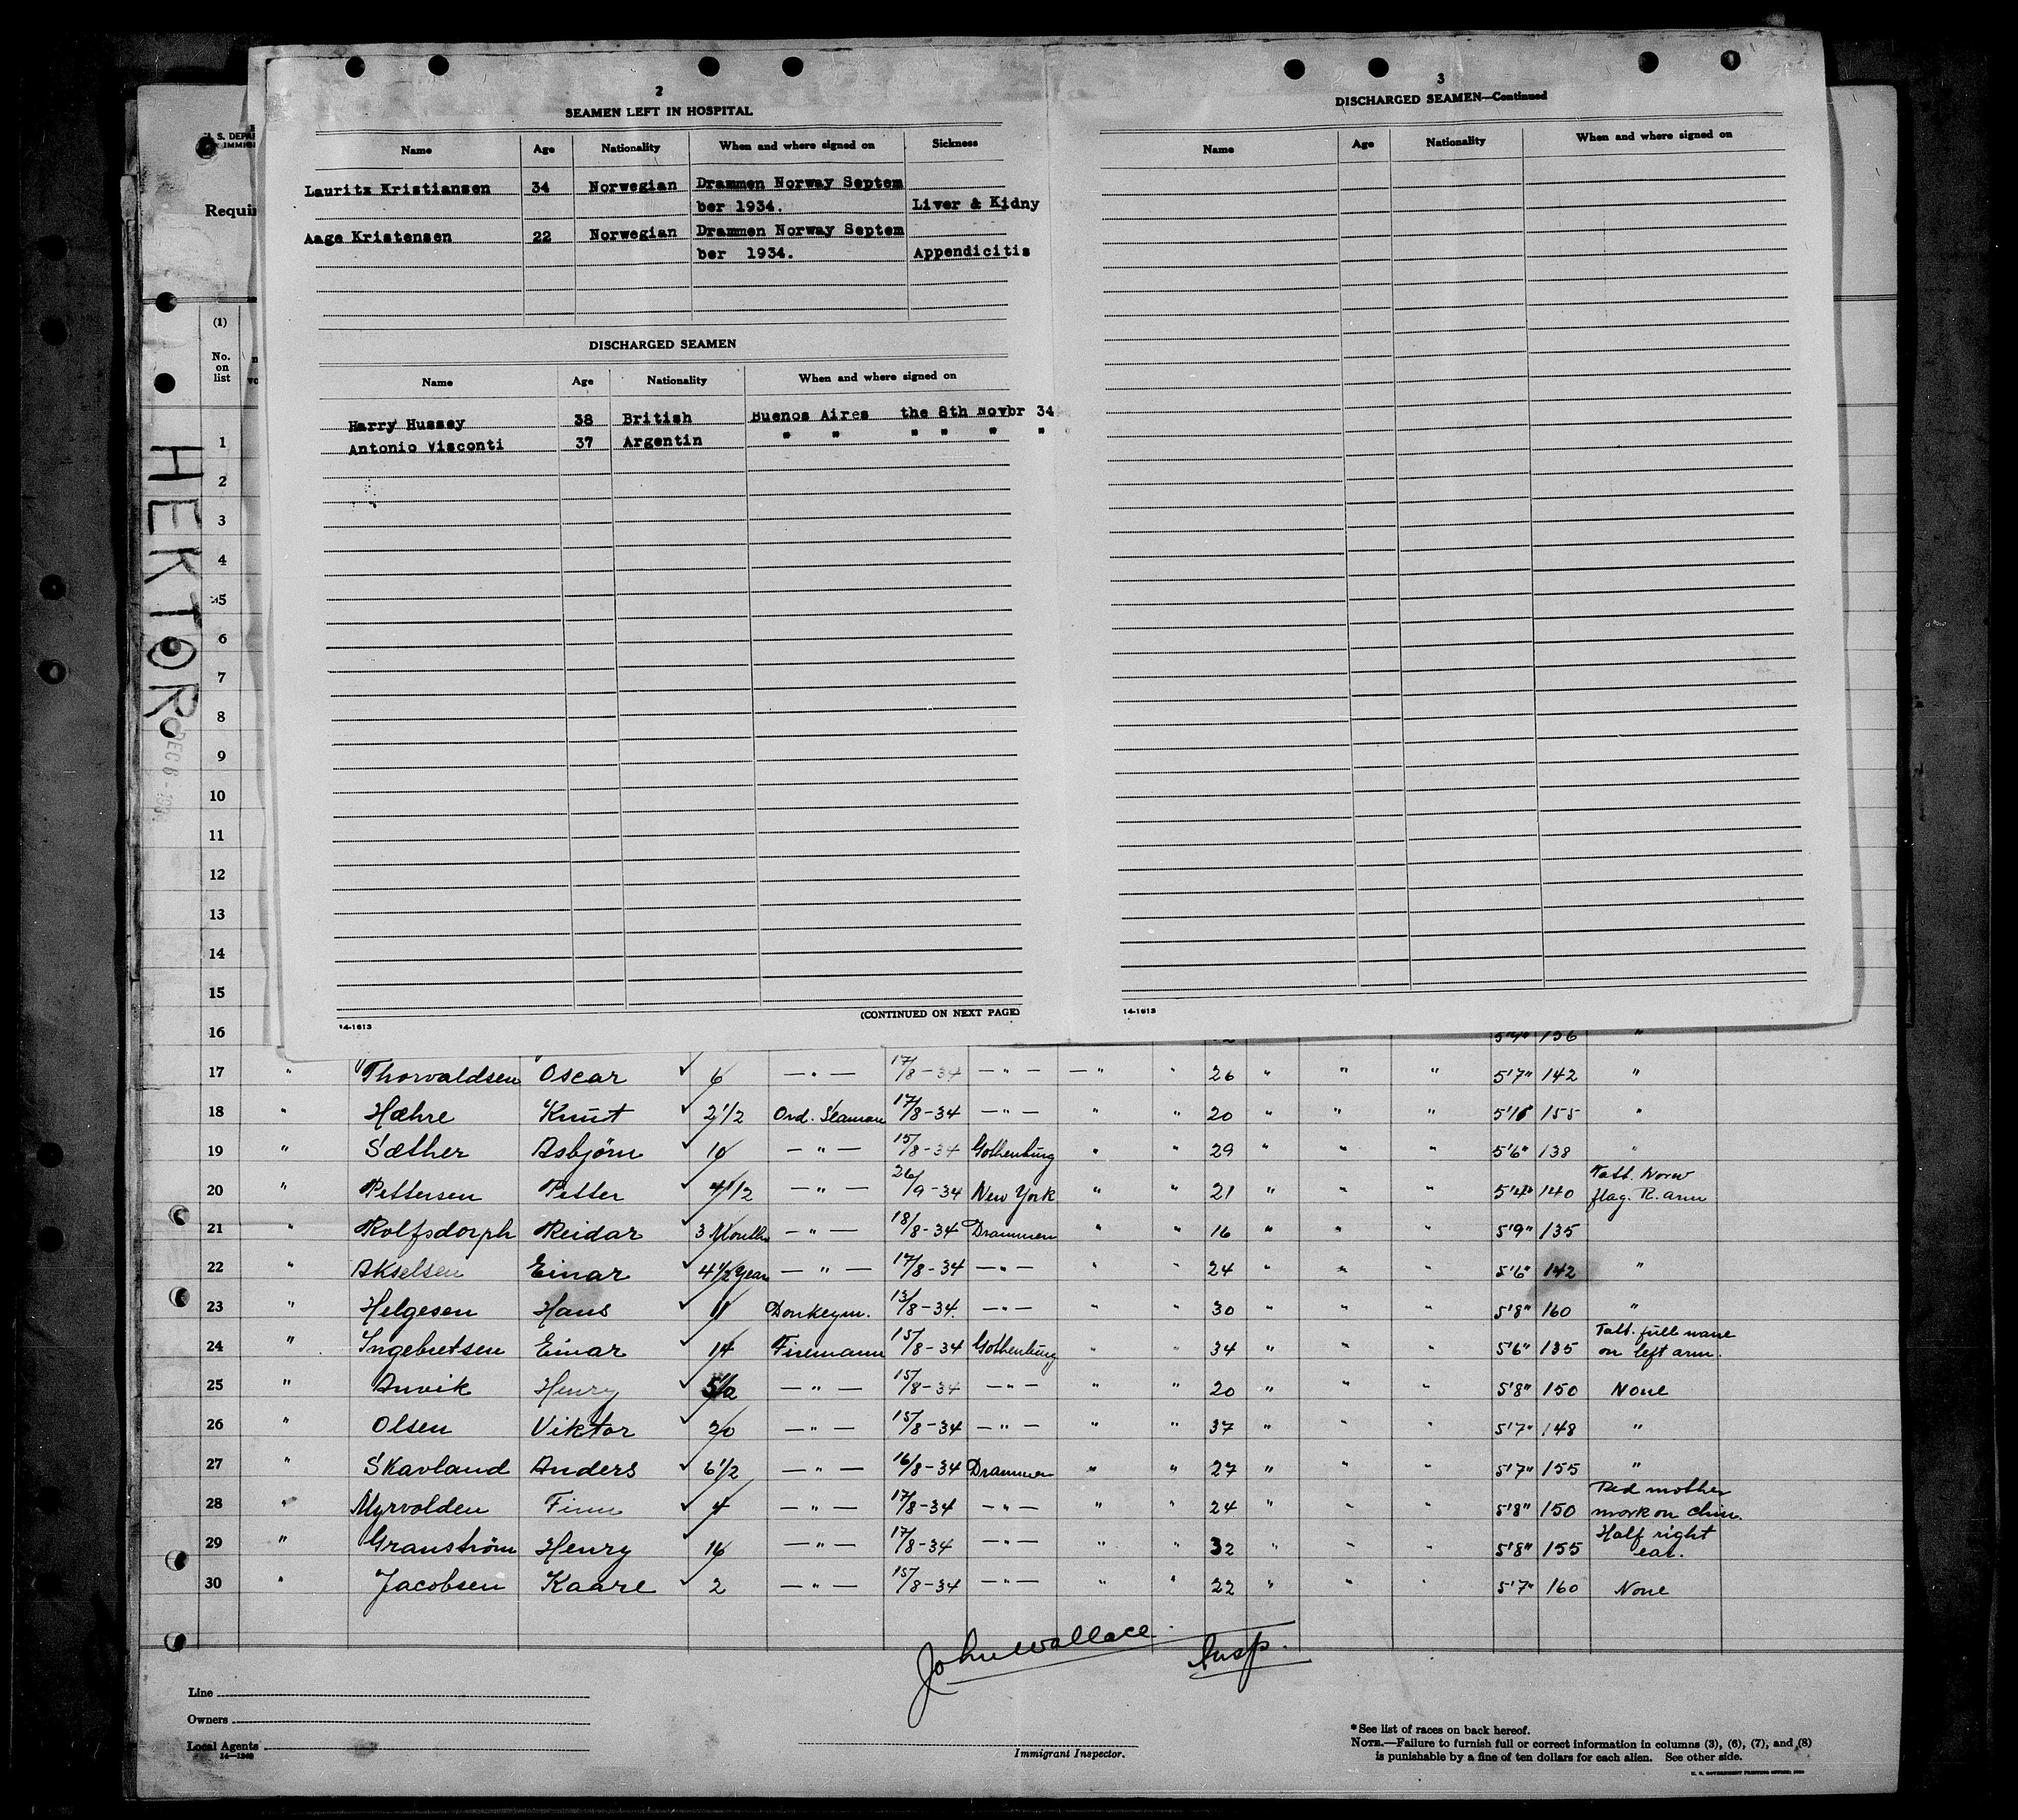 2
SEAMEN LEFT IN HOSPITAL
Name Age Nationality When and where signed on Sickness
Lauritz Kristiansen 34 Norwegian Drammen Norway Septem
ber 1934. Liver & Kidny
Aage Kristensen 22 Norwegian Drammen Norway Septem
ber 1934. Appendicitis
DISCHARGED SEAMEN
Name Age Nationality When and where signed on
Harry Hussey 38 British Buenos Aires the 8th Novbr 34
Antonio Visconti 37 Argentin " " " " " "
(CONTINUED ON NEXT PAGE)
14-1613
3
DISCHARGED SEAMEN—Continued
Name Age Nationality When and where signed on
14-1613
S. DEPA
IMMIG
Requi
(1)
No.
on
list
HEKTOR
DEC 6
1
2
3
4
5
6
7
8
9
10
11
12
13
14
15
16 5'4" 136 "
17 " Thorvaldsen Oscar ✓ 6 — " — 17/8-34 — " — — " " 26 " " " 5'7" 142 "
18 " Hæhre Knut ✓ 2 1/2 Ord. Seaman 17/8-34 — " — " " 20 " " " 155 "
19 " Sæther Asbjörn ✓ 10 — " — 15/8-34 Gothenburg " " 29 " " " 5'6" 138 "
20 " Pettersen Petter ✓ 4 1/2 — " — 26/9-34 New York " " 21 " " " 5'4" 140 Tatt. Norw
flag. R. arm
21 " Rolfsdorph Reidar ✓ 3 Months — " — 18/8-34 Drammen " " 16 " " " 5'9" 135
22 " Akselsen Einar ✓ 4 1/2 Year — " — 17/8-34 — " — " " 24 " " " 5'6" 142 "
23 " Helgesen Hans ✓ 11 Donkeym. 13/8-34. — " — " " 30 " " " 5'8" 160 "
24 " Ingebretsen Einar ✓ 14 Firemann 15/8-34 Gothenburg " " 34 " " " 5'6" 135 Tatt. full name
on left arm.
25 " Anvik Henry ✓ 5 1/2 — " — 15/8-34 — " — " " 20 " " " 5'8" 150 None
26 " Olsen Viktor ✓ 20 — " — 15/8-34 — " — " " 37 " " " 5'7" 148 "
27 " Skavland Anders ✓ 6 1/2 — " — 16/8-34 Drammen " " 27 " " " 5'7" 155 "
28 " Myrvolden Finn ✓ 4 — " — 17/8-34 — " — " " 24 " " " 5'8" 150 Red mother
mork on chin.
29 " Granström Henry ✓ 16 — " — 17/8-34 — " — " " 32 " " " 5'8" 155 Half right
ear.
30 " Jacobsen Kaare ✓ 2 — " — 15/8-34 — " — " " 22 " " " 5'7" 160 None
John Wallace Insp.
Line
Owners
Local Agents
14—1240
Immigrant Inspector.
*See list of races on back hereof.
NOTE.—Failure to furnish full or correct information in columns (3), (6), (7), and (8)
is punishable by a fine of ten dollars for each alien. See other side.